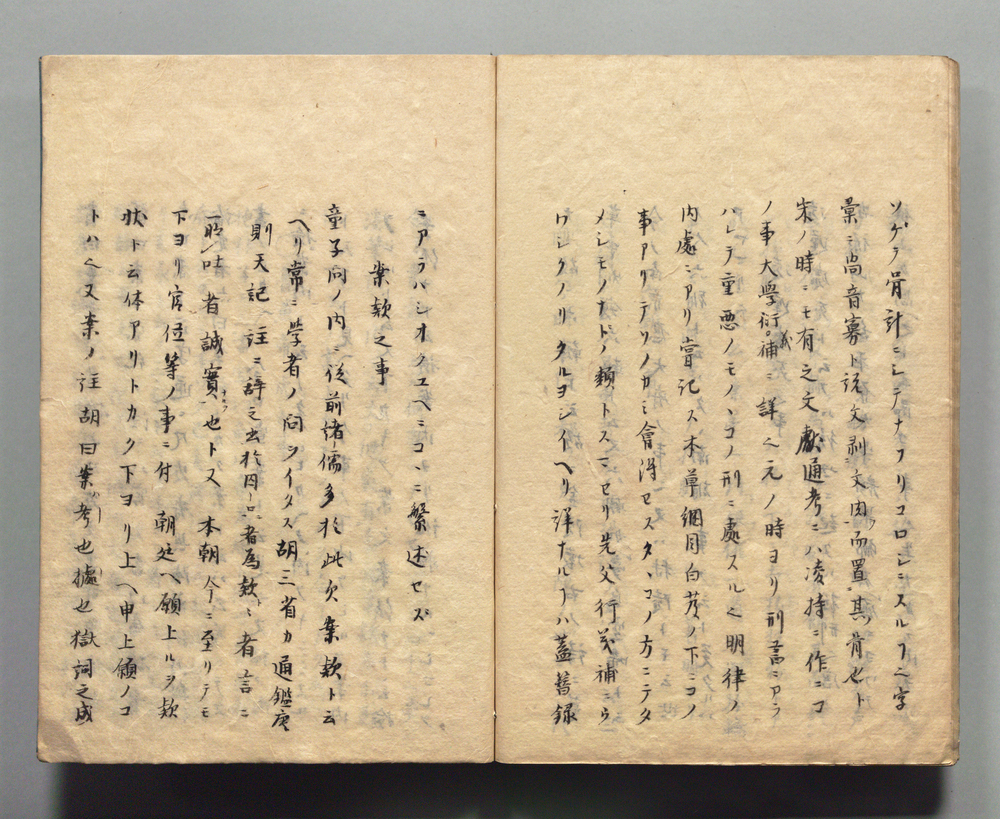 ソゲテ骨計ニシテナフリコロシニスルヿ字
彙ニ咼音寡ト説文剮文肉而置其骨也ト
宋ノ時ニモ有之文獻通考ニハ凌持ニ作ニコ
ノ事大學衍義補ニ詳ヘ元ノ時ヨリ刑書ニアラ
ハレテ重悪ノモノヽコノ刑ニ處スルヘ明律ノ
内處ニアリ嘗記ス本草綱目白芨ノ下ニコノ
事アリテリノカミ會得セスタヽコノ方ニテタ
メシモノナトノ類トスマセリ先父行義補ニ
ワシクノリタルヨシイヘリ詳ナルヿハ蓋簪録
ニアラハシオクユヘニコヽニ繁述セズ
案款之事
童子問ノ内ニ従前諸儒多於此欠案款ト云
ヘリ常ニ學者ノ問ヲイタス胡三省カ通鑑
則天記ノ註ニ辞之出於囚口者為款ヽ者言ニ
所吐者誠實也トス 本朝今ニ至リテモ
下ヨリ官位等ノ事ニ付 朝廷ヘ願上ルヲ款
状ト云体アリトカク下ヨリ上ヘ申上願ノコ
トハヘ又案ノ註胡曰案考也據也獄詞之成